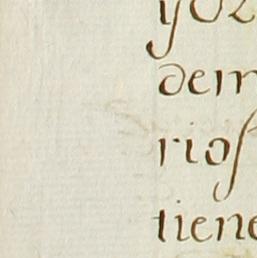 yol
dem
rios
tiene